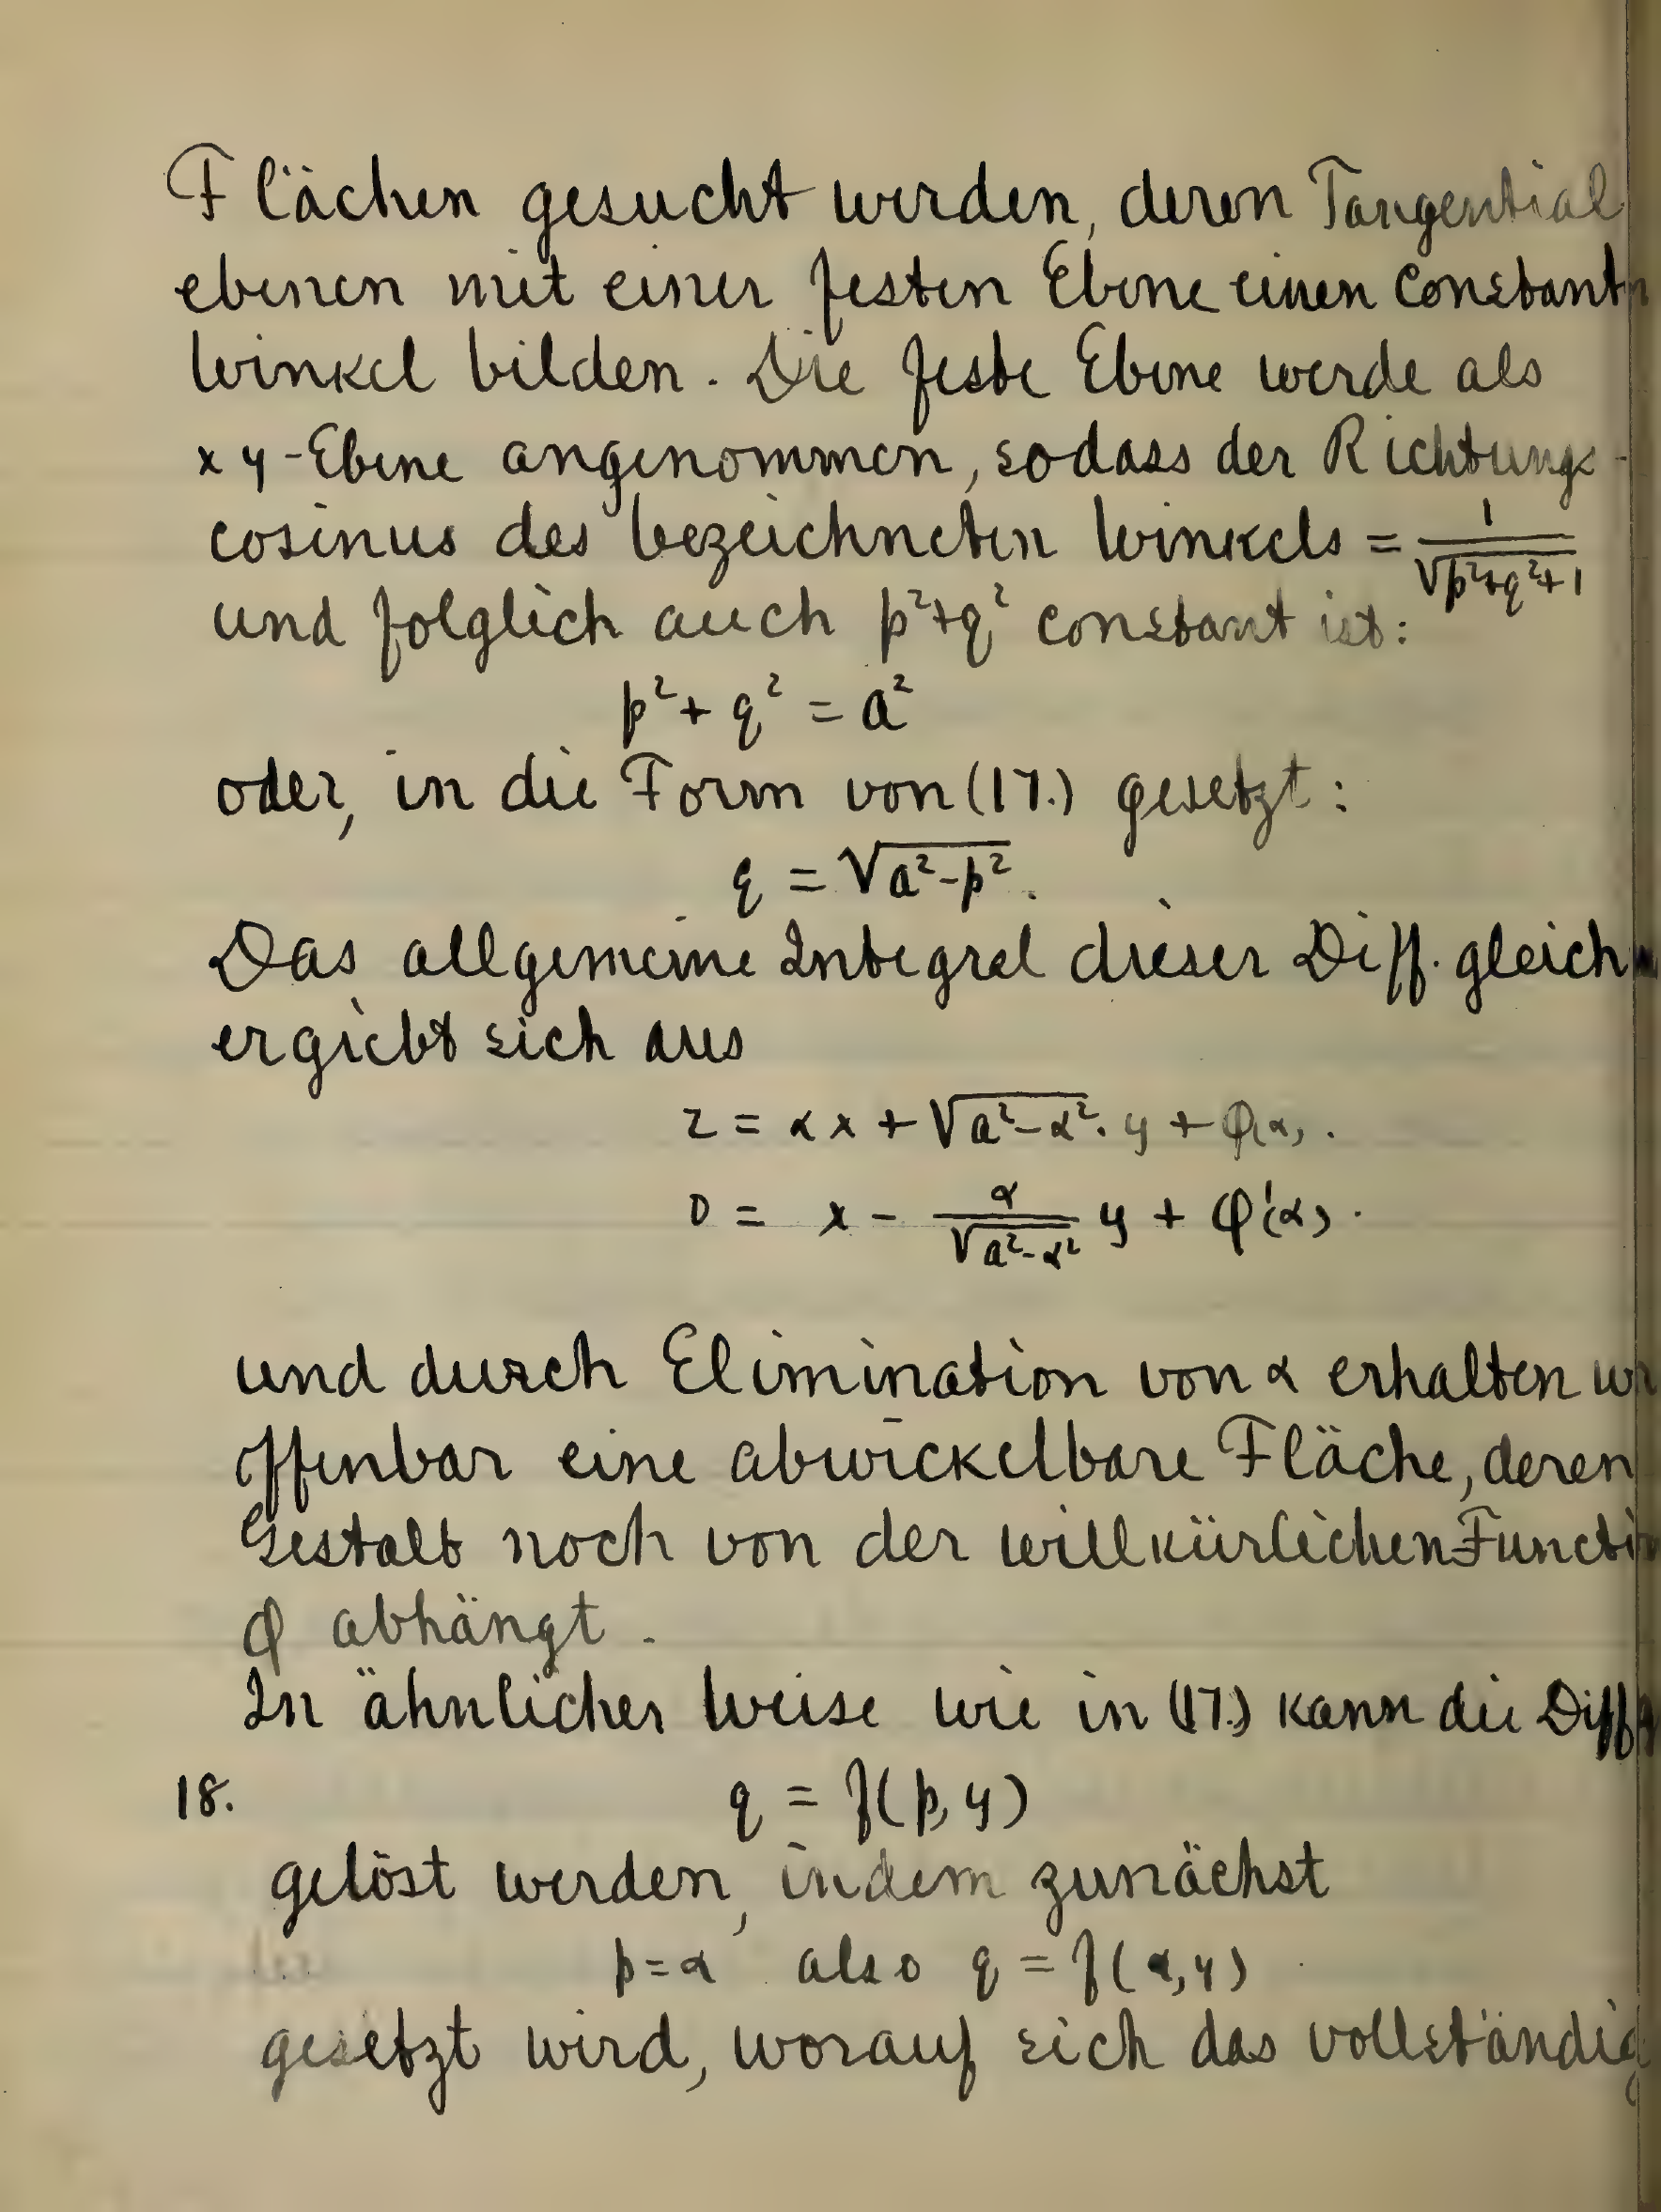 Flächen gesucht werden, deren Tangential
ebenen mit einer festen Ebene einen constant
Winkel bilden. Die feste Ebene werde als
xy-Ebene angenommen, sodass der Richtungs-
cosinus des bezeichneten Winkels = 1/√(p²+q²+1)
und folglich auch p²+q² constant ist:
p² + q² = a²
oder, in die Form von (17.) gesetzt:
q = √(a²-p²).
Das allgemeine Integral dieser Diff. gleich
ergiebt sich aus
z = αx + √(a²-α²). y + φ(α).
0 = x - α/√(a²-α²) y + φ'(α).
und durch Elimination von α erhalten w
offenbar eine abwickelbare Fläche, deren
Gestalt noch von der willkürlichen Functi
φ abhängt.
In ähnlicher Weise wie in (17.) kann die Diff
18. q = f(p, y)
gelöst werden, indem zunächst
p = α also q = f(α, y)
gesetzt wird, worauf sich das vollständig